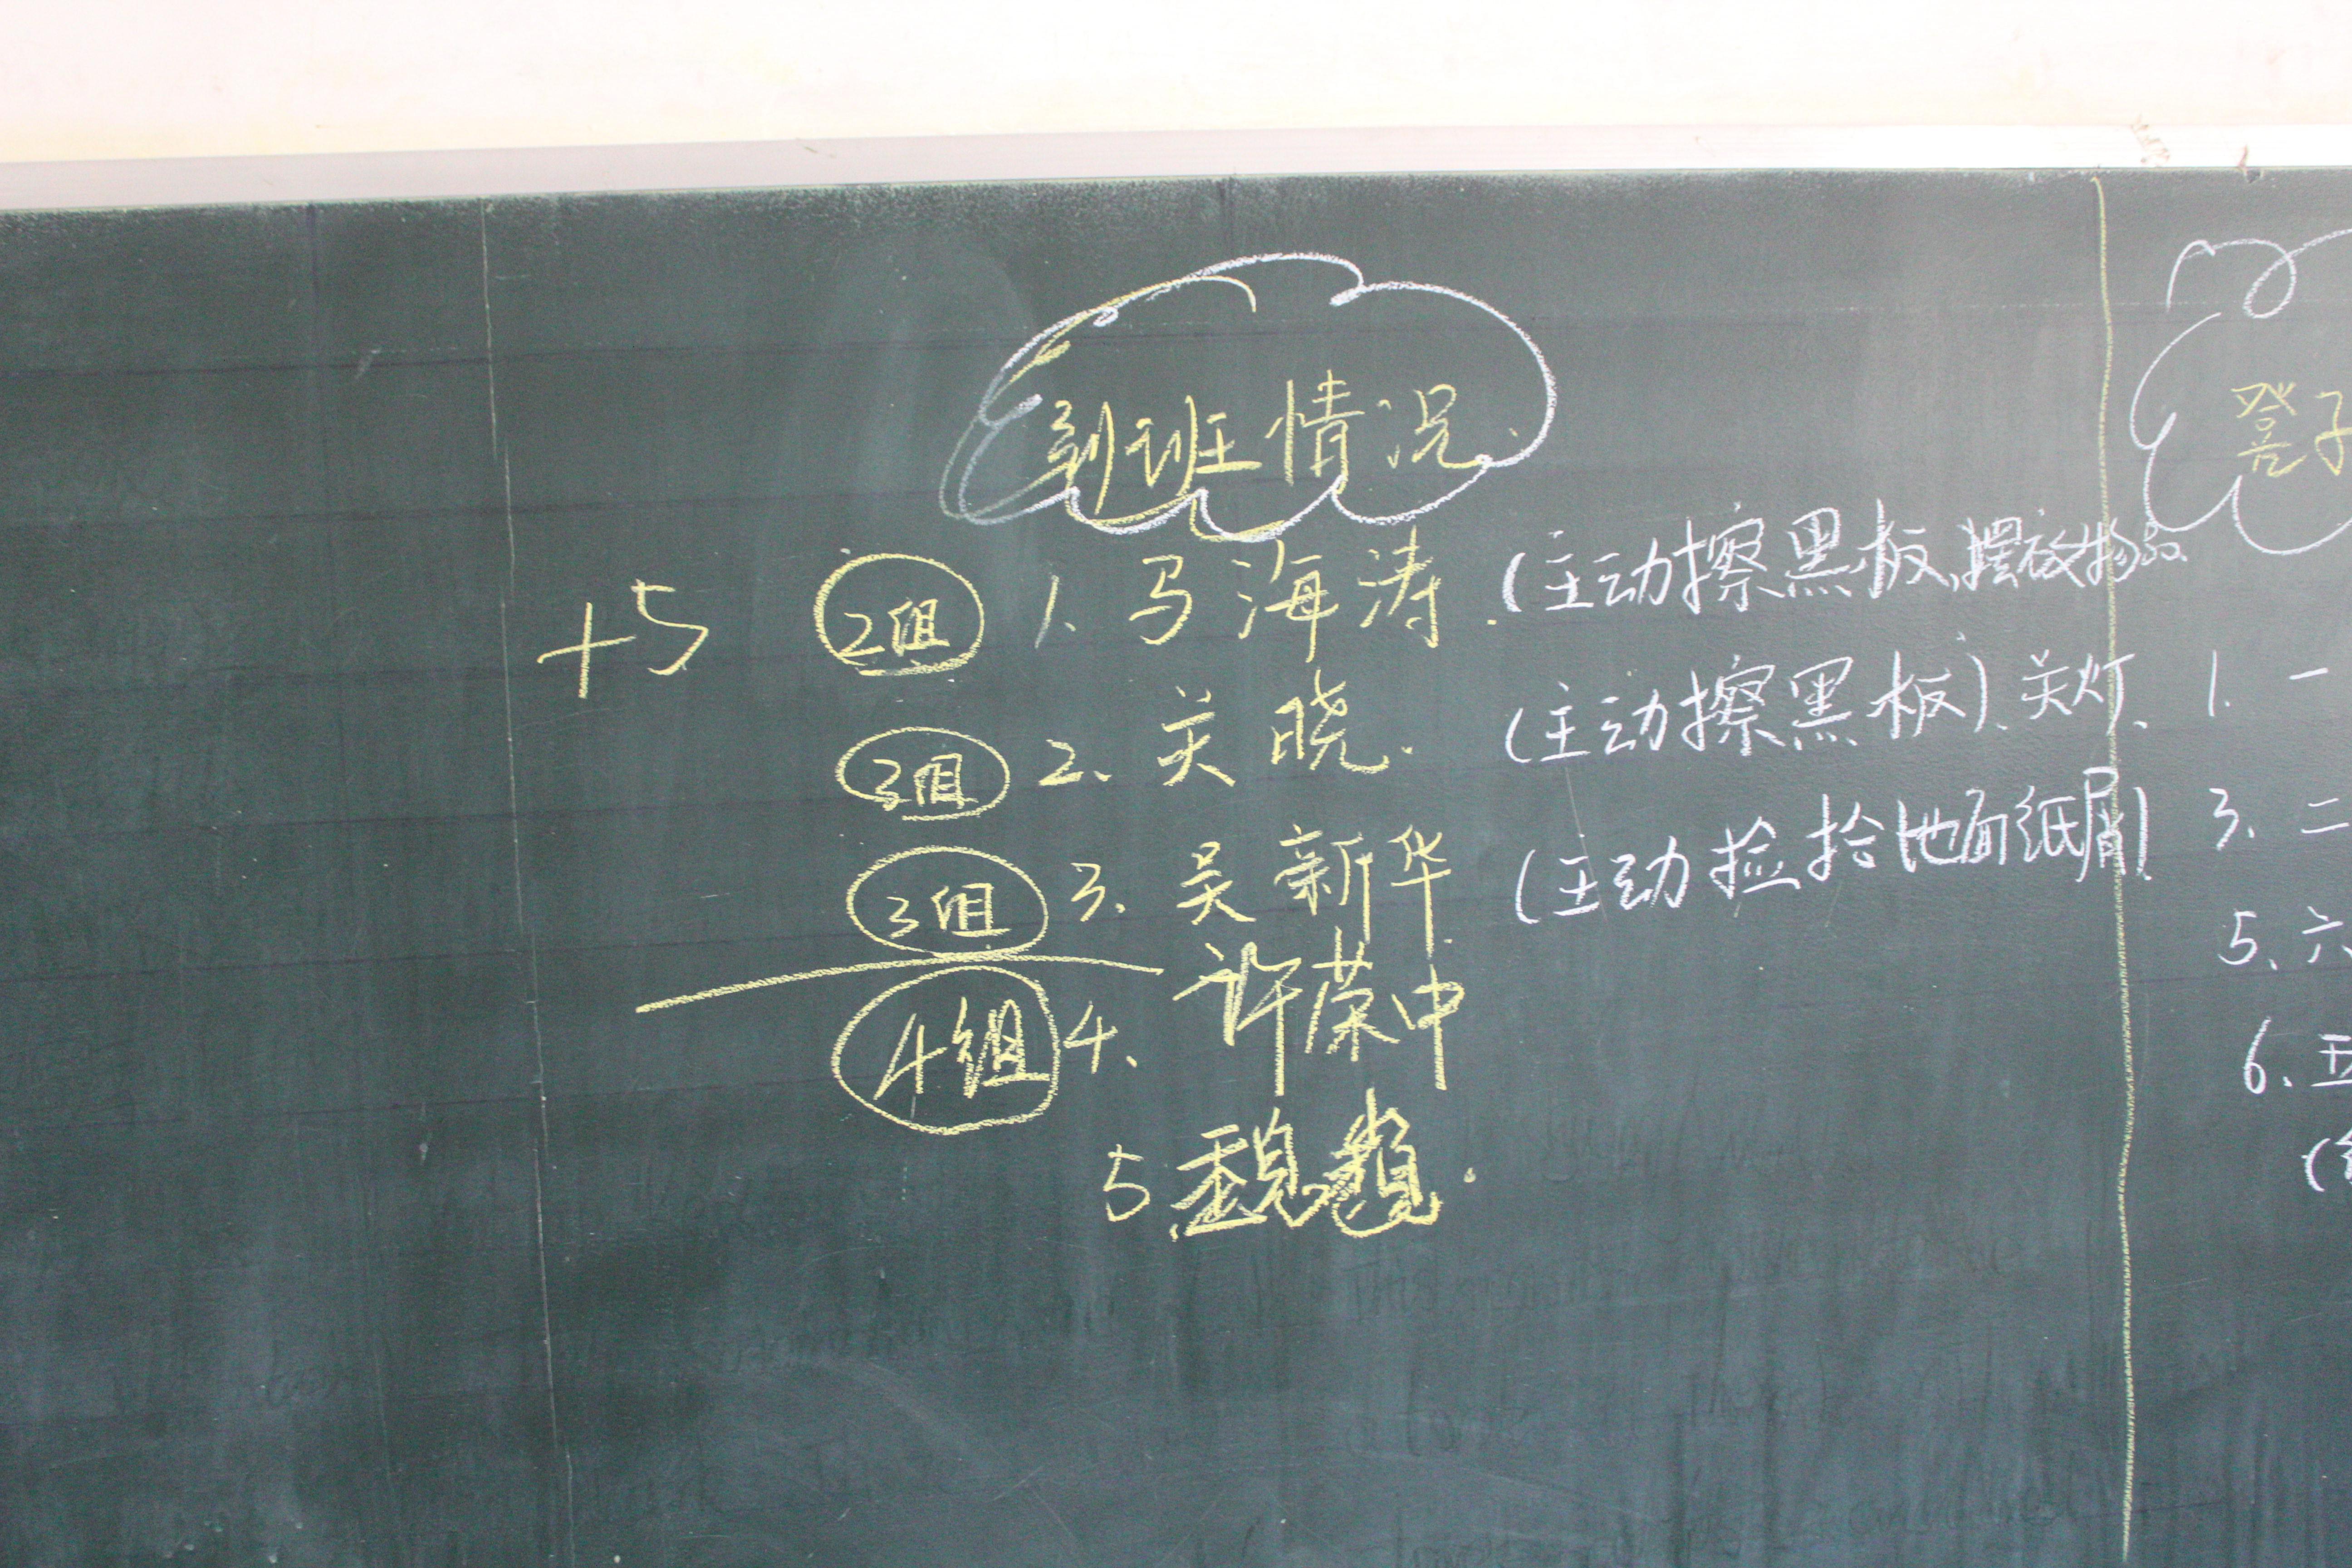 到班情况.
+5 2组 1. 马海涛. (主动擦黑板,摆放物品.
3组 2. 关晓. (主动擦黑板).关灯.
3组 3. 吴新华 (主动捡拾地面纸屑)
4组 4. 许荣中
5 魏
凳子
1. 一
3. 二
5. 六
6. 五
(